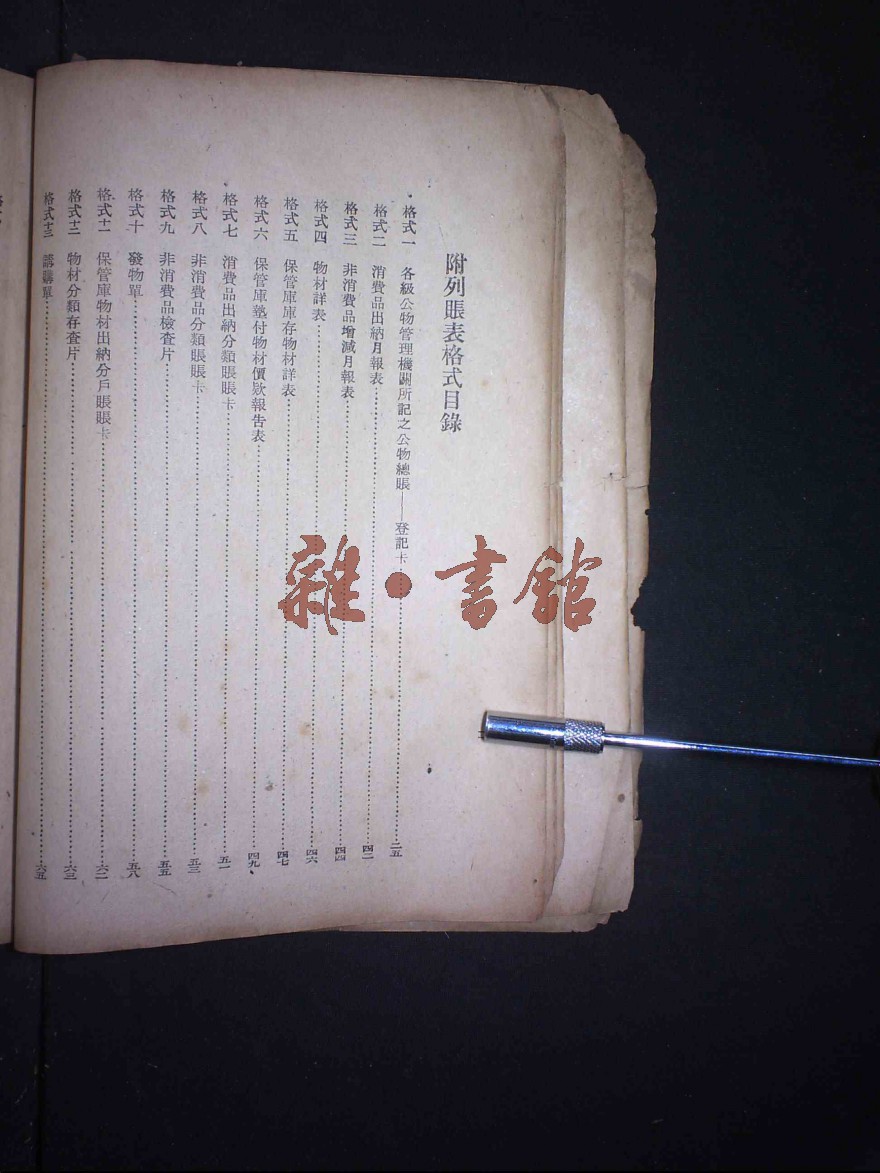 附列賬表格式目錄
格式一 各級公物管理機關所記之公物總賬——登記卡……二五
格式二 消費品出納月報表……四二
格式三 非消費品增減月報表……四四
格式四 物材詳表……四六
格式五 保管庫庫存物材詳表……四七
格式六 保管庫墊付物材價款報告表……四九
格式七 消費品出納分類賬賬卡……五一
格式八 非消費品分類賬賬卡……五三
格式九 非消費品檢查片……五五
格式十 發物單……五八
格式十一 保管庫物材出納分戶賬賬卡……六二
格式十二 物材分類存查片……六三
格式十三 請購單……六五
雜·書館